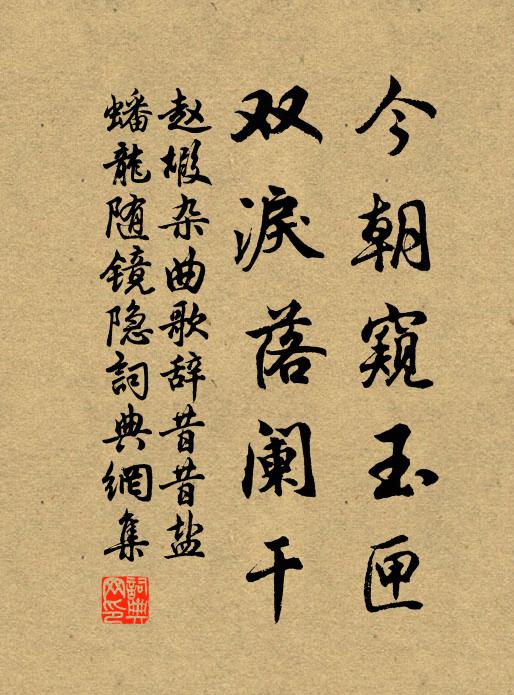 今朝窥玉匣
双淚落阑干
赵嘏杂曲歌辞昔昔盐
蟠龍随镜隐詞典網集
詞典网印